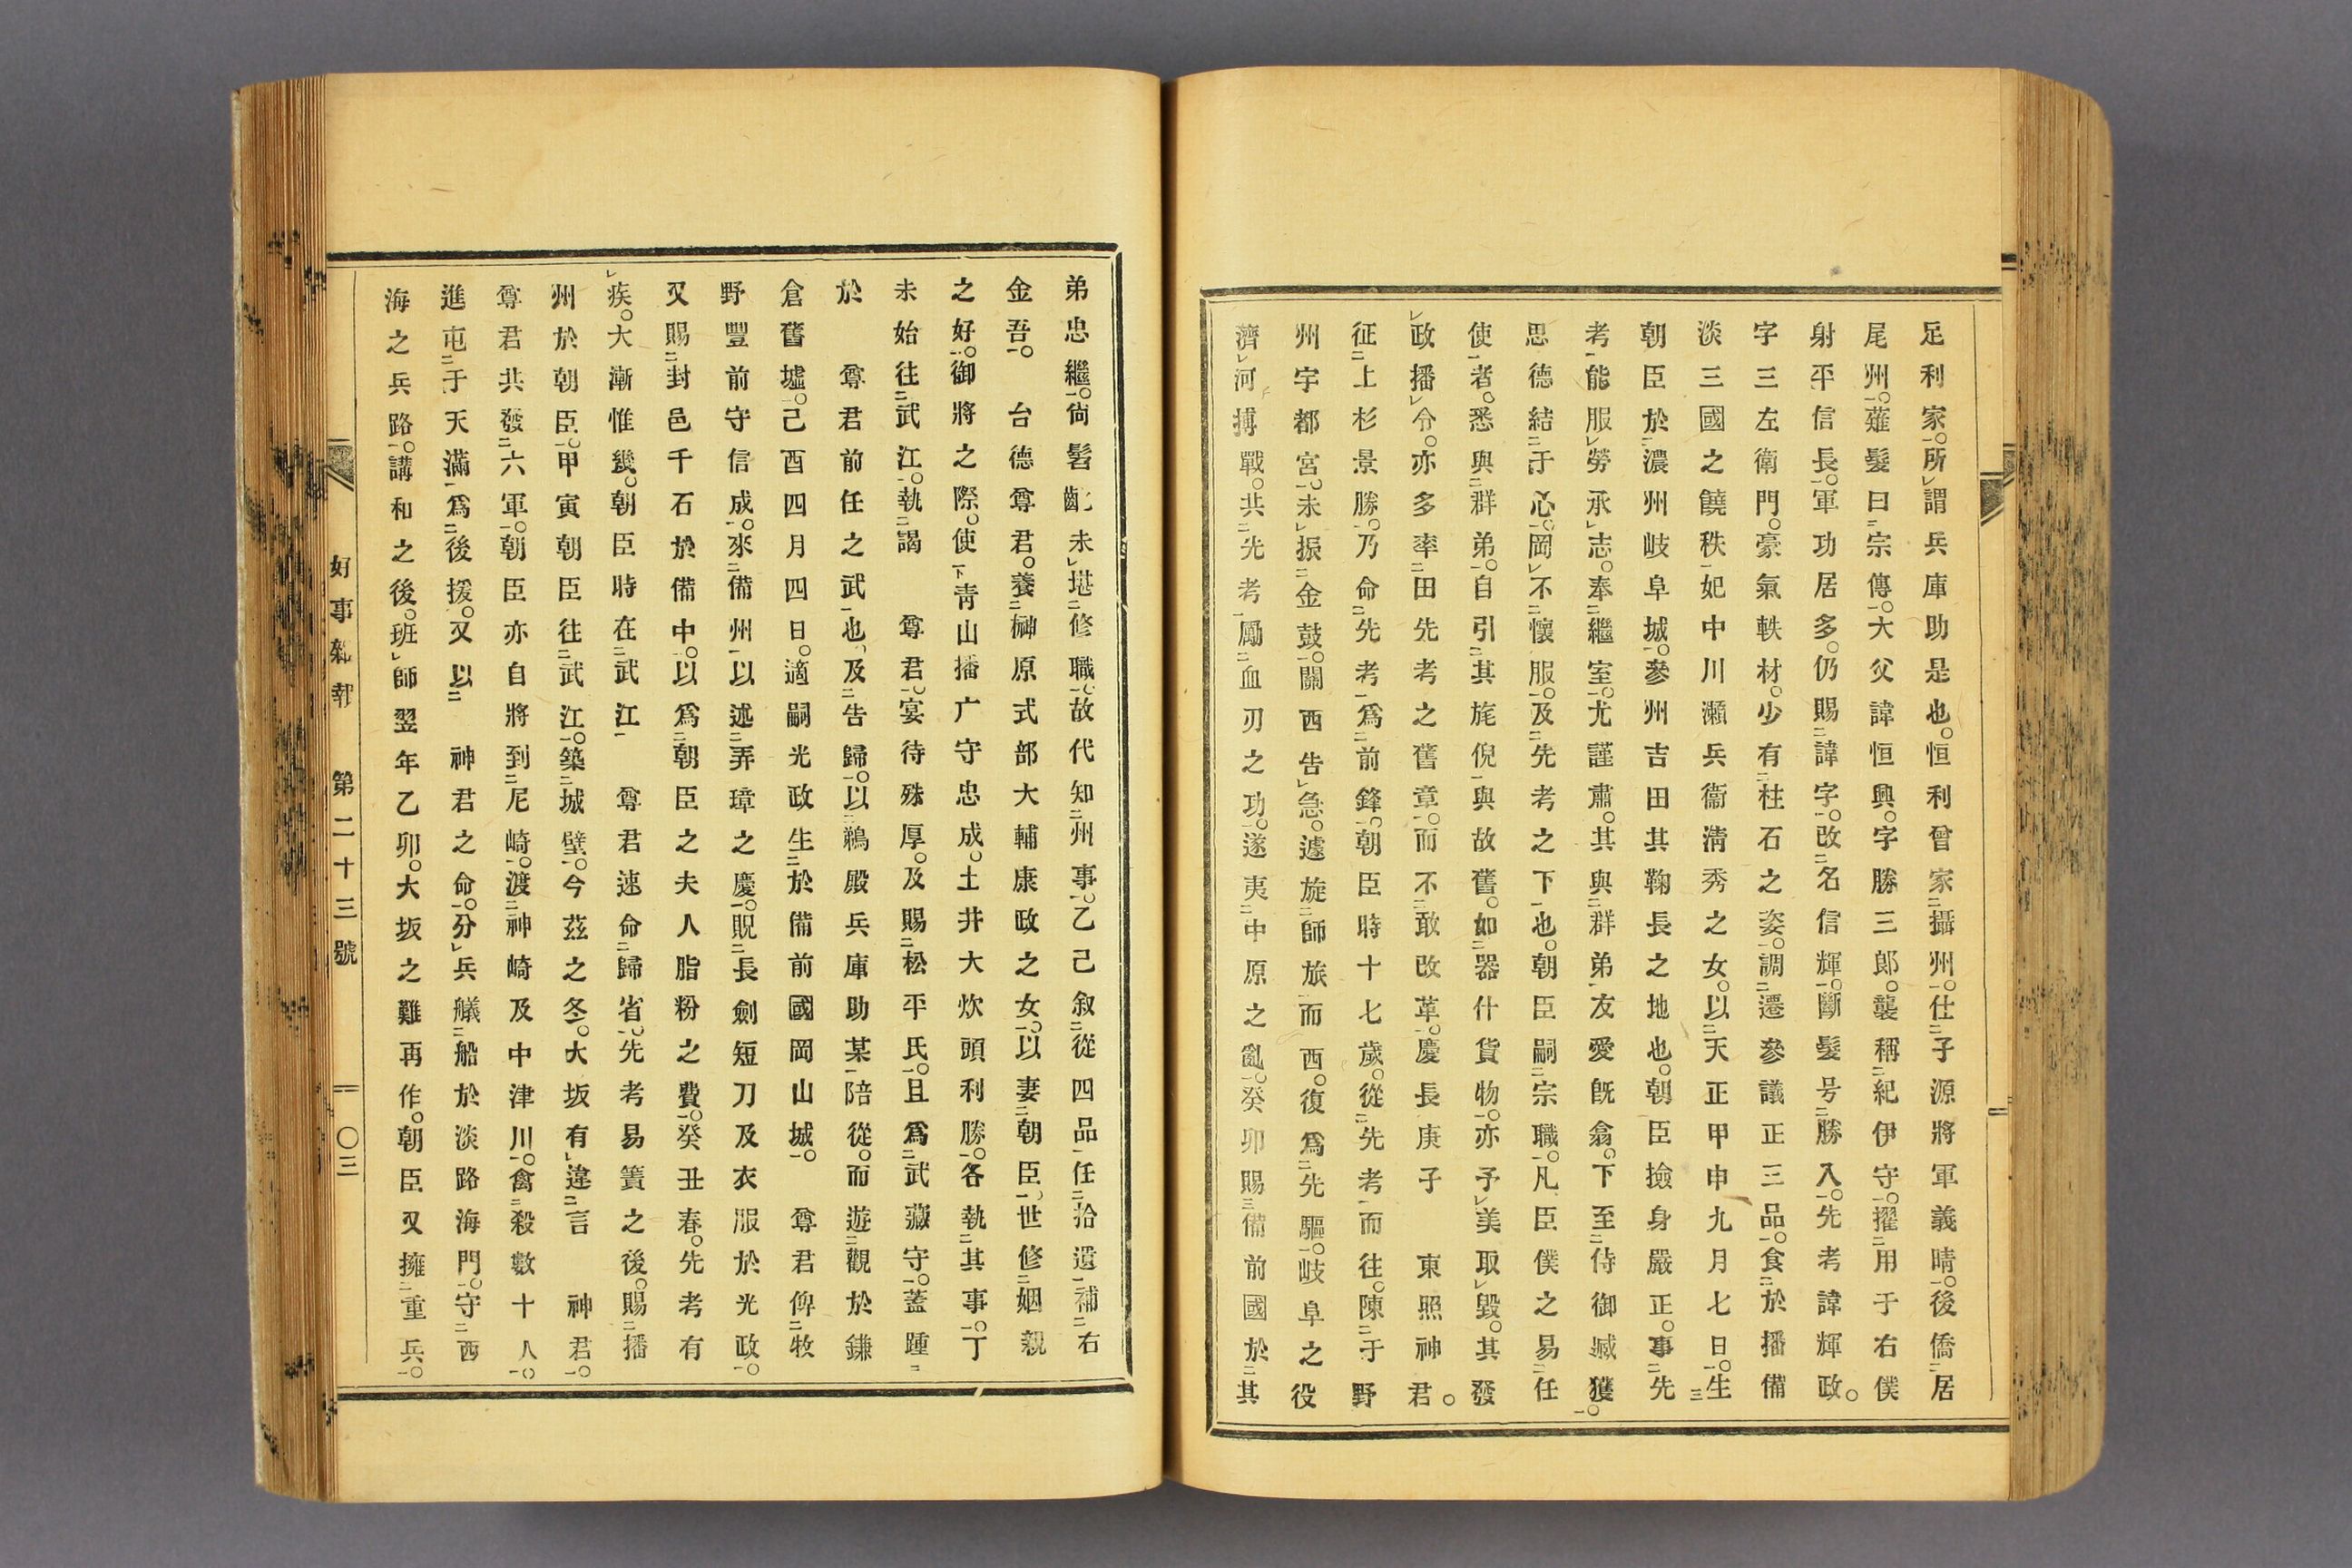 足利家。所謂兵庫助是也。恒利曾家攝州。仕子源將軍義晴。後僑居
尾州。薙髮曰宗傳。大父諱恒興。字勝三郎。襲稱紀伊守。擢用于右僕
射平信長。軍功居多。仍賜諱字。改名信輝。斷髮号勝入。先考諱輝政。
字三左衛門。豪氣軼材。少有柱石之姿。調遷參議正三品。食於播備
淡三國之饒秩妃中川瀬兵衞淸秀之女。以天正甲申九月七日。生
朝臣於濃州岐阜城。參州吉田其鞠長之地也。朝臣撿身嚴正。事先
考能服勞承志。奉繼室。尤謹肅。其與群弟友愛既翕。下至侍御臧獲。
思德結于心。罔不懷服。及先考之下也。朝臣嗣宗職。凡臣僕之易任
使者。悉與群弟。自引其旄倪與故舊。如器什貨物。亦予美取毀。其發
政播令。亦多率田先考之舊章。而不敢改革。慶長庚子　東照神君。
征上杉景勝。乃命先考爲前鋒。朝臣時十七歲。從先考而往。陳于野
州宇都宮。未振金鼓。關西告急。遽旋師旅而西。復爲先驅。岐阜之役
濟河搏戰。共先考勵血刃之功。遂夷中原之亂。癸卯賜備前國於其
弟忠繼。尙髫齔未堪修職。故代知州事。乙己叙從四品任拾遺補右
金吾。　台德尊君。養榊原式部大輔康政之女。以妻朝臣、世修姻親
之好。御將之際。使靑山播广守忠成。土井大炊頭利勝。各執其事。丁
未始往武江。執謁　尊君。宴待殊厚。及賜松平氏。且爲武藏守。蓋踵
於　尊君前任之武也、及告歸。以鵜殿兵庫助某陪從。而遊觀於鎌
倉舊墟。己酉四月四日。適嗣光政生於備前國岡山城。　尊君俾牧
野豐前守信成。來備州以述弄璋之慶。貺長劍短刀及衣服於光政。
又賜封邑千石於備中。以爲朝臣之夫人脂粉之費。癸丑春。先考有
疾。大漸惟幾。朝臣時在武江　尊君速命歸省。先考易簀之後。賜播
州於朝臣。甲寅朝臣往武江。築城壁。今茲之冬。大坂有違言　神君。
尊君共發六軍。朝臣亦自將到尼崎。渡神崎及中津川。禽殺數十人。
進屯于天滿爲後援。又以　神君之命。分兵艤船於淡路海門。守西
海之兵路。講和之後。班師翌年乙卯。大坂之難再作。朝臣又擁重兵。
好事雜報　第二十三號　〇三